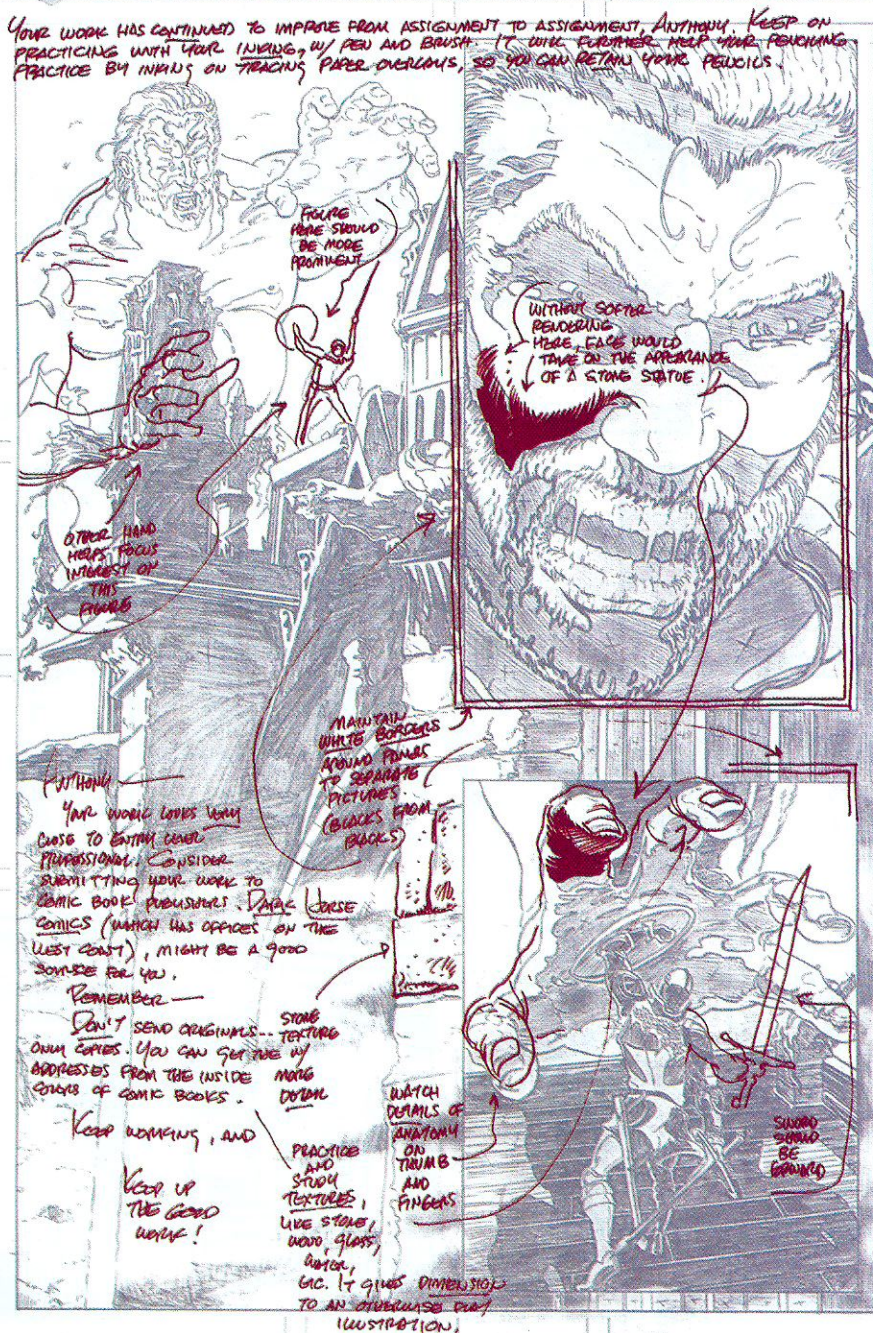 YOUR WORK HAS CONTINUED TO IMPROVE FROM ASSIGNMENT TO ASSIGNMENT, ANTHONY. KEEP ON
PRACTICING WITH YOUR INKING, W/ PEN AND BRUSH. IT WILL FURTHER HELP YOUR PENCILING
PRACTICE BY INKING ON TRACING PAPER OVERLAYS, SO YOU CAN RETAIN YOUR PENCILS.
FIGURE
HERE SHOULD
BE MORE
PROMINENT
WITHOUT SOFTER
RENDERING
HERE, FACE WOULD
TAKE ON THE APPEARANCE
OF A STONE STATUE.
OTHER HAND
HELPS FOCUS
INTEREST ON
THIS
FIGURE
MAINTAIN
WHITE BORDERS
AROUND PANELS
TO SEPARATE
PICTURES
(BLACKS FROM
BLACKS)
ANTHONY —
YOUR WORK LOOKS VERY
CLOSE TO ENTRY LEVEL
PROFESSIONAL. CONSIDER
SUBMITTING YOUR WORK TO
COMIC BOOK PUBLISHERS. DARK HORSE
COMICS (WHICH HAS OFFICES ON THE
WEST COAST), MIGHT BE A GOOD
SOURCE FOR YOU.
REMEMBER —
DON'T SEND ORIGINALS...
ONLY COPIES. YOU CAN GET THE
ADDRESSES FROM THE INSIDE
COVERS OF COMIC BOOKS.
KEEP WORKING, AND
KEEP UP
THE GOOD
WORK!
STONE
TEXTURE
W/
MORE
DETAIL
PRACTICE
AND
STUDY
TEXTURES,
LIKE STONE,
WOOD, GLASS,
WATER,
ETC. IT GIVES DIMENSION
TO AN OTHERWISE FLAT
ILLUSTRATION.
WATCH
DETAILS OF
ANATOMY
ON
THUMB
AND
FINGERS
SWORD
SHOULD
BE
FORWARD